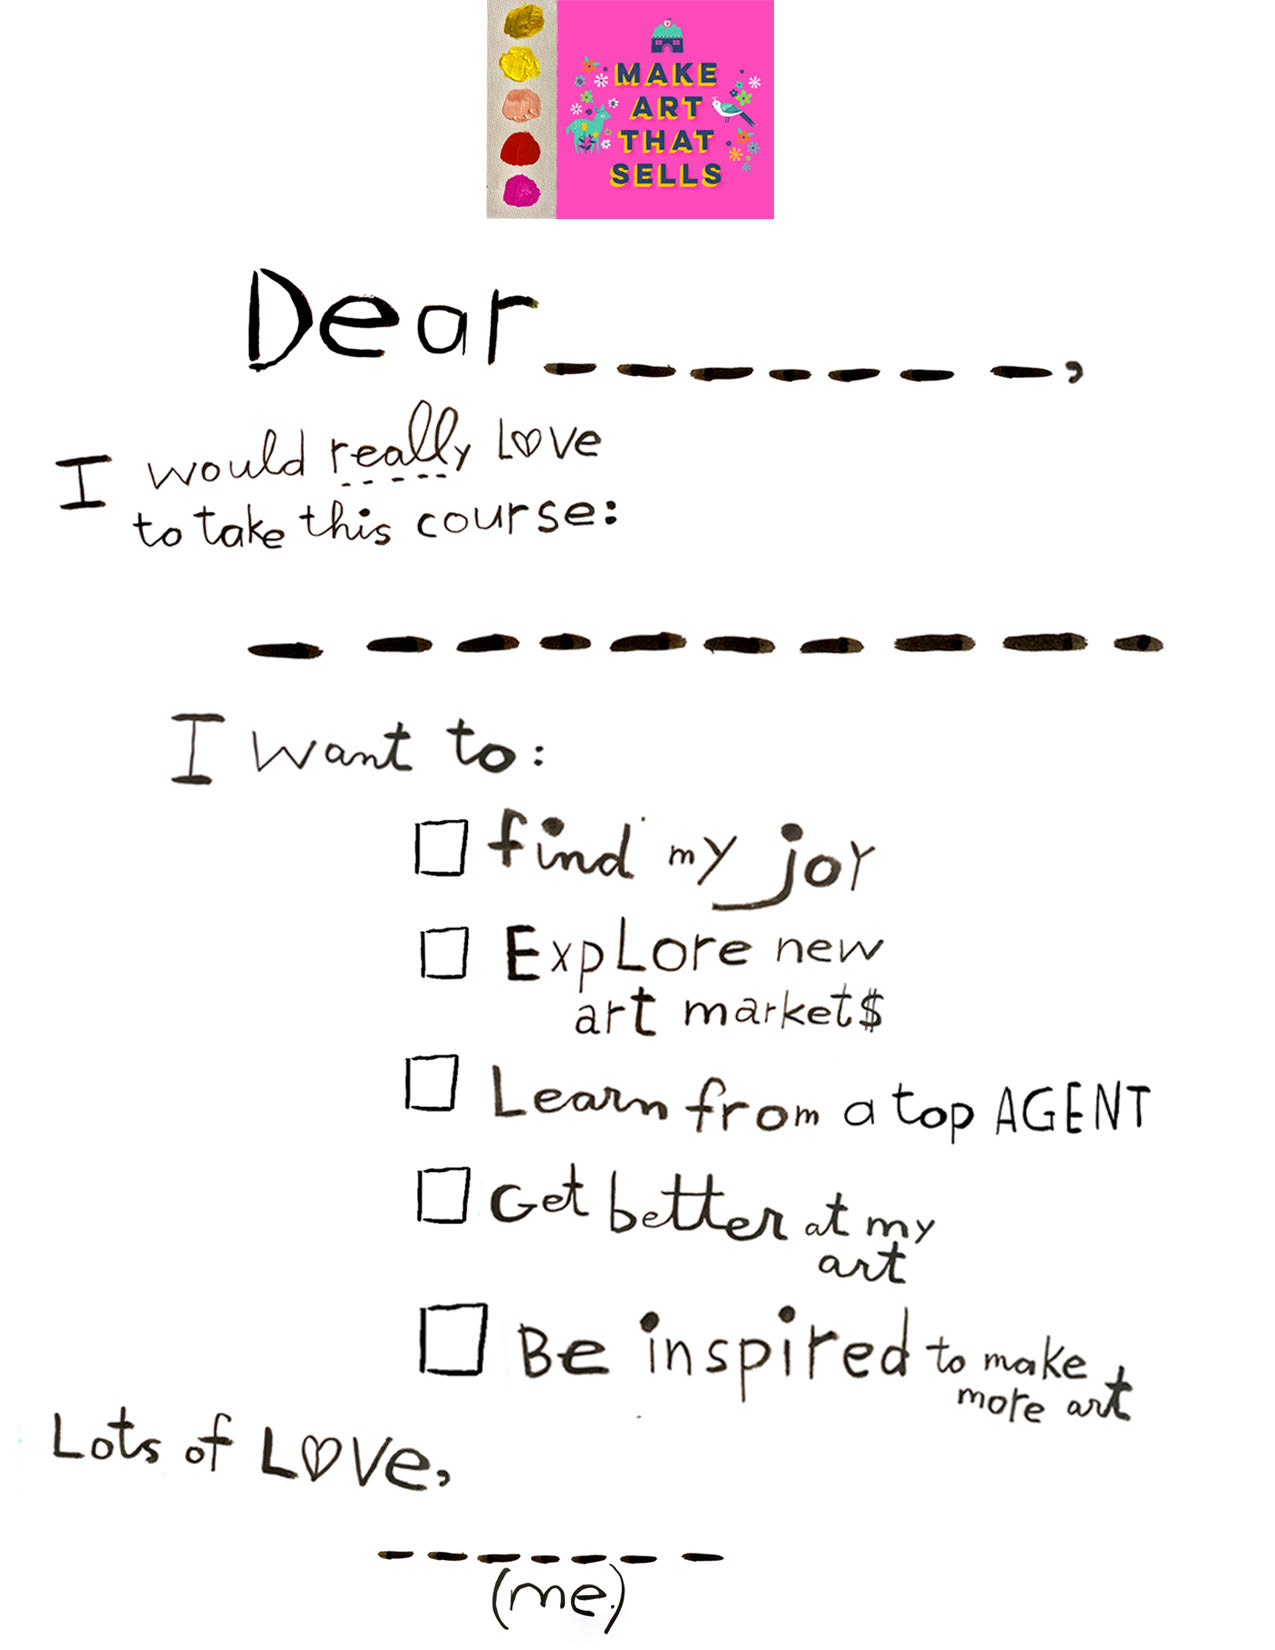 MAKE
ART
THAT
SELLS
Dear _ _ _ _ _ _ _,
I would really Love
to take this course:
_ _ _ _ _ _ _ _ _ _
I want to:
find my joy
Explore new
art market$
Learn from a top AGENT
Get better at my
art
Be inspired to make
more art
Lots of Love,
_ _ _ _ _ _ _
(me)